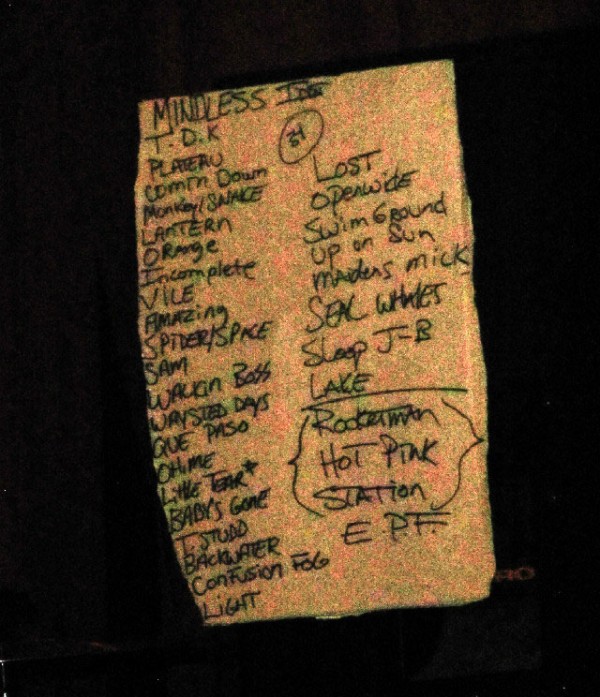 MINDLESS
T. D. K
PLATEAU
Comin Down
Monkey/SNAKE
LANTERN
Orange
Incomplete
VILE
AMAZing
SPIDER/SPACE
SAM
WALKIN BOSS
WAYSTED DAYS
QUE PASO
OH ME
Little TEAR*
BABYS GONE
I. STUDD
BACKWATER
CONFUSION FOG
LIGHT
LOST
Openwide
Swim Ground
UP on Sun
maidens mick
SEAL WHALES
Sloop J-B
LAKE
Rocketman
HOT PINK
STATION
E P.F.